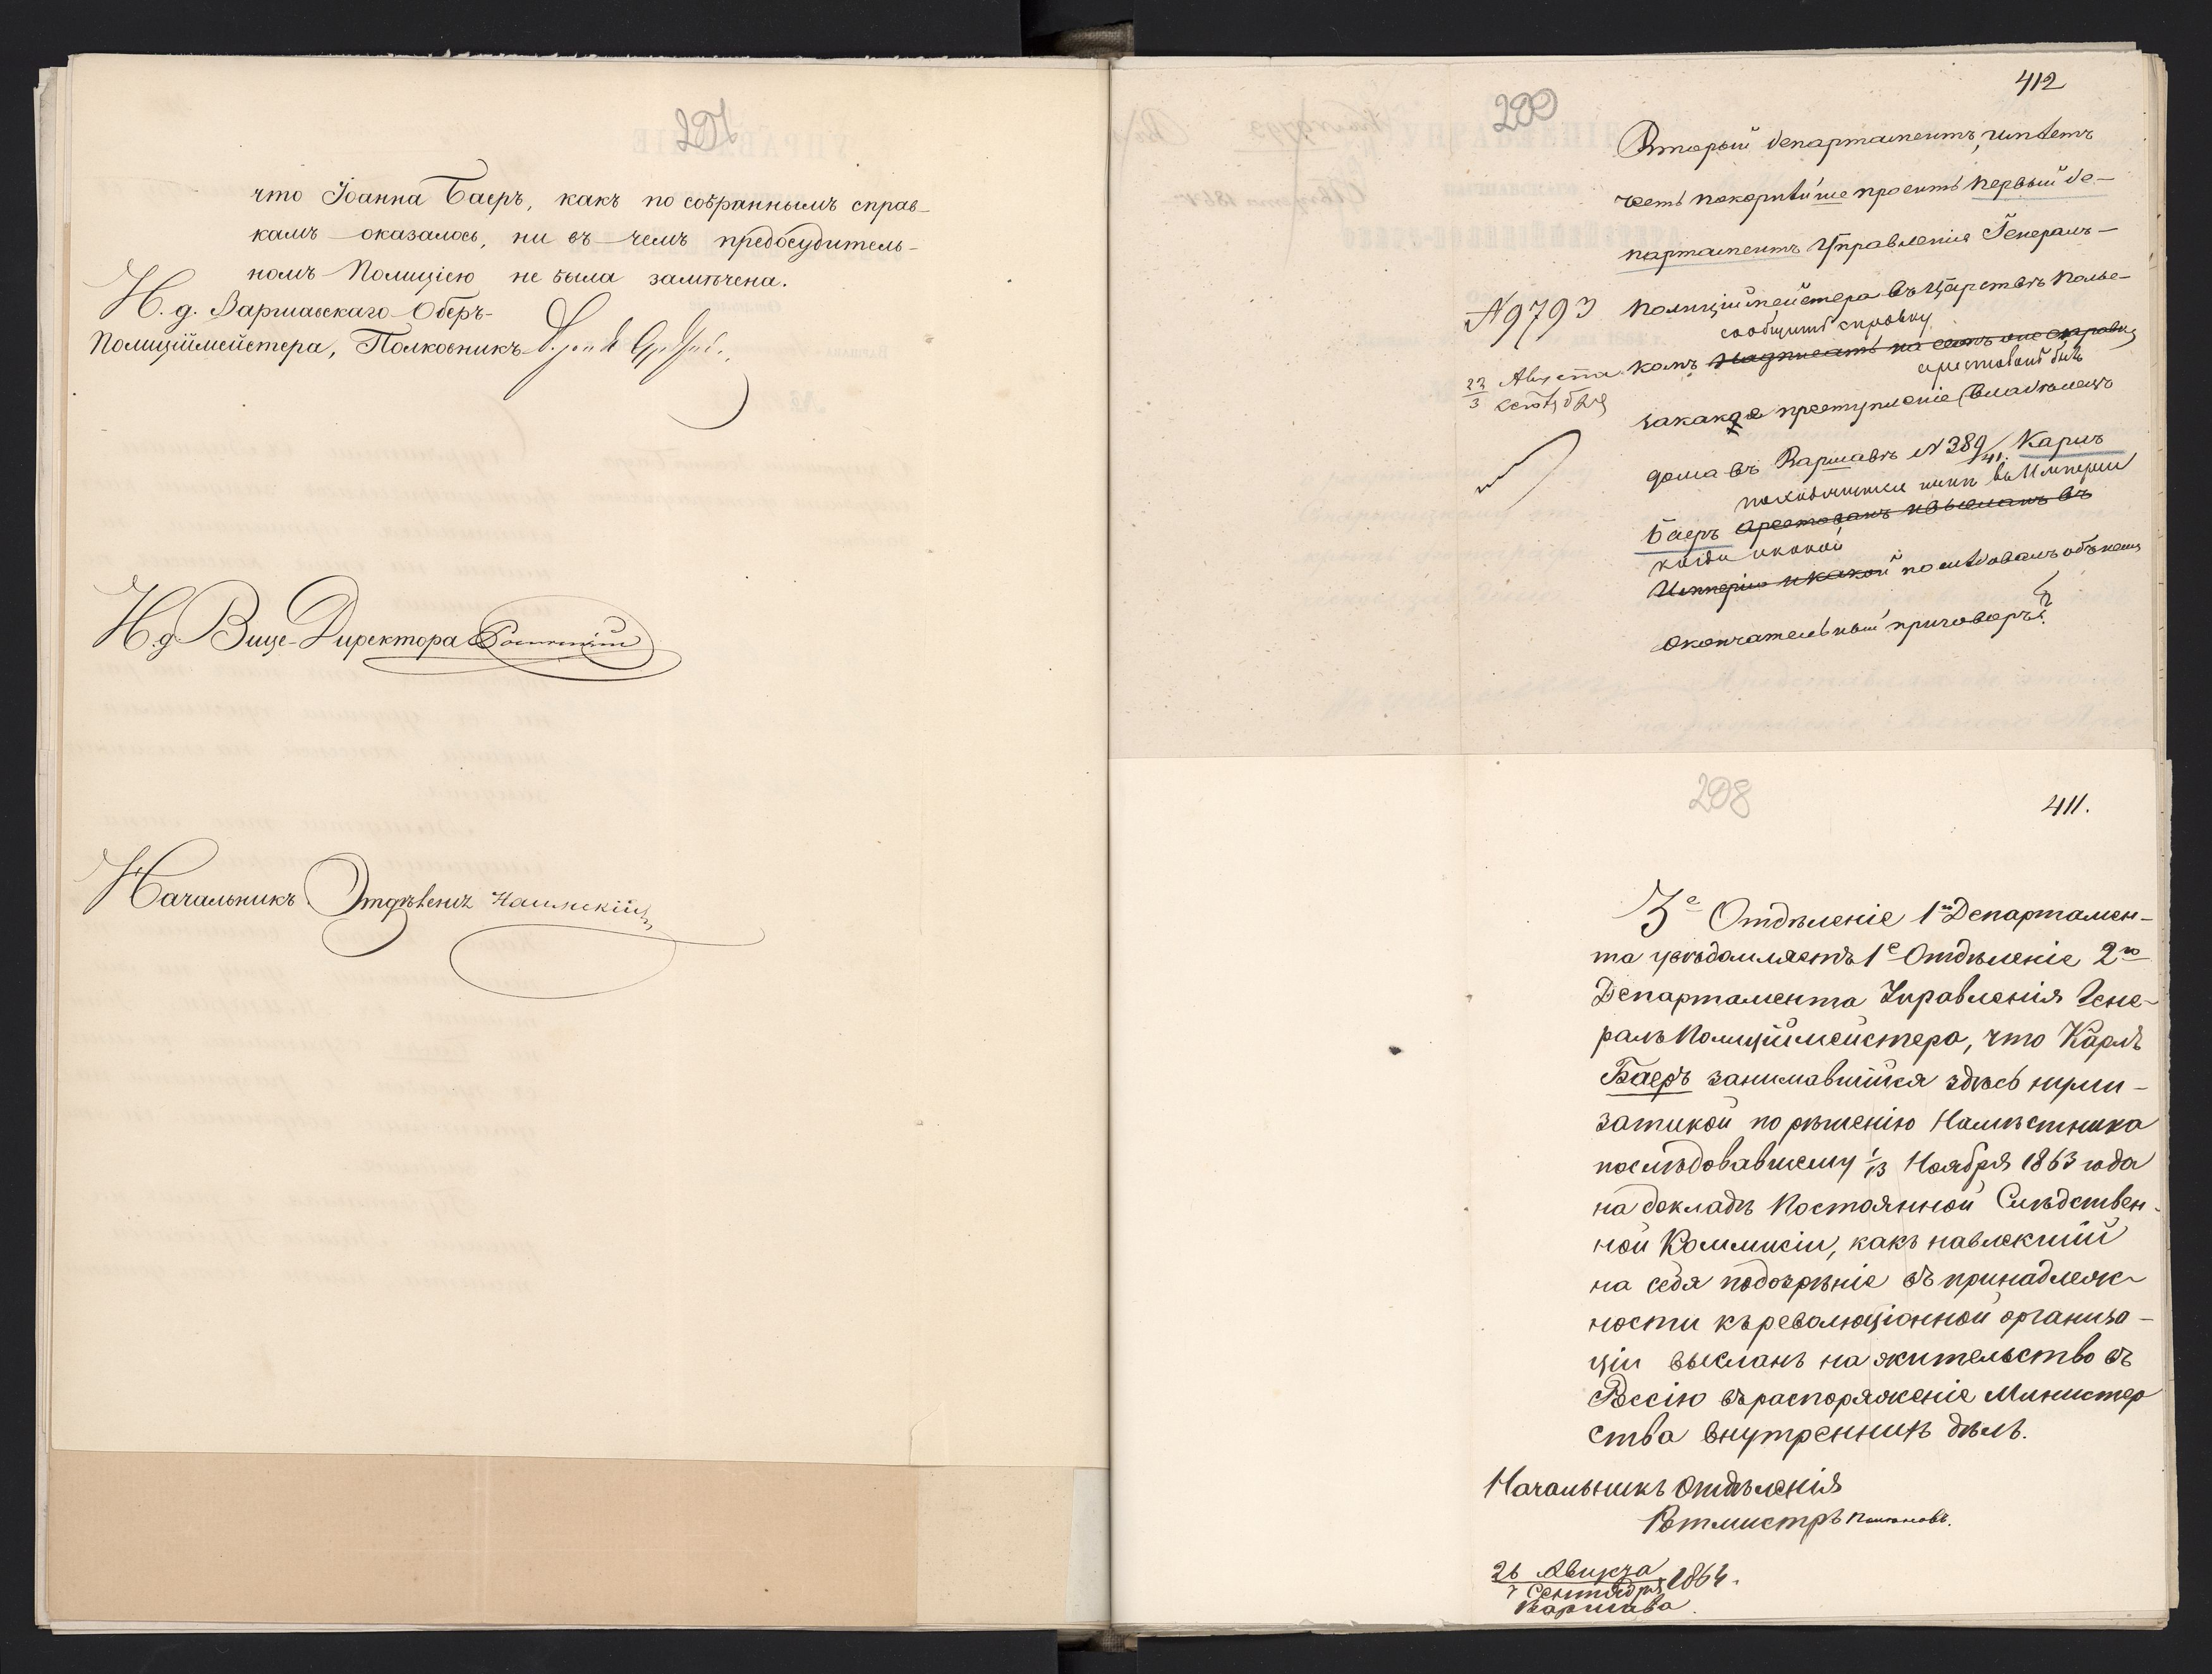 207
что Іоанна Баеръ, какъ по собраннымъ справ-
камъ оказалось, ни въ чемъ предосудитель-
номъ Полиціею не была замѣчена.
Н. д. Варшавскаго Оберъ-
Полиціймейстера, Полковникъ
Н. д. Вице-Директора
Начальникъ
200
412
Вторый департаментъ, имѣетъ
честь покорнѣйше просить первый де-
партаментъ Управленія Генералъ-
№ 9793
Полиціймейстера въ Царствѣ Поль-
сообщить справку
комъ надписать на семъ же справку
22 Августа
3 Сентября
арестованъ былъ
за какое преступленіе владѣлецъ
дома въ Варшавѣ № 389/41. Карлъ
находящійся нынѣ въ Имперіи
Баеръ арестованъ и высланъ въ
когда и какой
Имперію и какой послѣдовалъ объ немъ
окончательный приговоръ?
208
411.
3е Отдѣленіе 1го Департамен-
та увѣдомляетъ 1е Отдѣленіе 2го
Департамента Управленія Гене-
ралъ Полиціймейстера, что Карлъ
Баеръ занимавшійся здѣсь
по рѣшенію Намѣстника
послѣдовавшему 1/13 Ноября 1863 года
на докладъ Постоянной Слѣдствен-
ной Коммисіи, какъ навлекшій
на себя подозрѣніе въ принадлеж-
ности къ революціонной организа-
ціи высланъ на жительство въ
Россію въ распоряженіе Министер
ства внутреннихъ дѣлъ.
Начальникъ Отдѣленія
Ротмистръ
26 Августа
7 Сентября 1864.
Варшава.